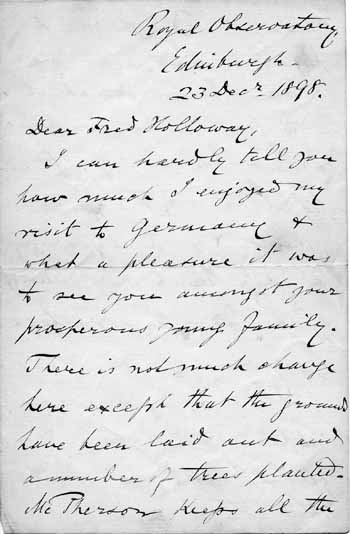 Royal Observatory,
Edinburgh.
23 Decr. 1898.
Dear Fred Holloway,
I can hardly tell you
how much I enjoyed my
visit to Germany &
what a pleasure it was
to see you amongst your
prosperous young family.
There is not much change
here except that the ground
have been laid out and
a number of trees planted.
McPherson keeps all the